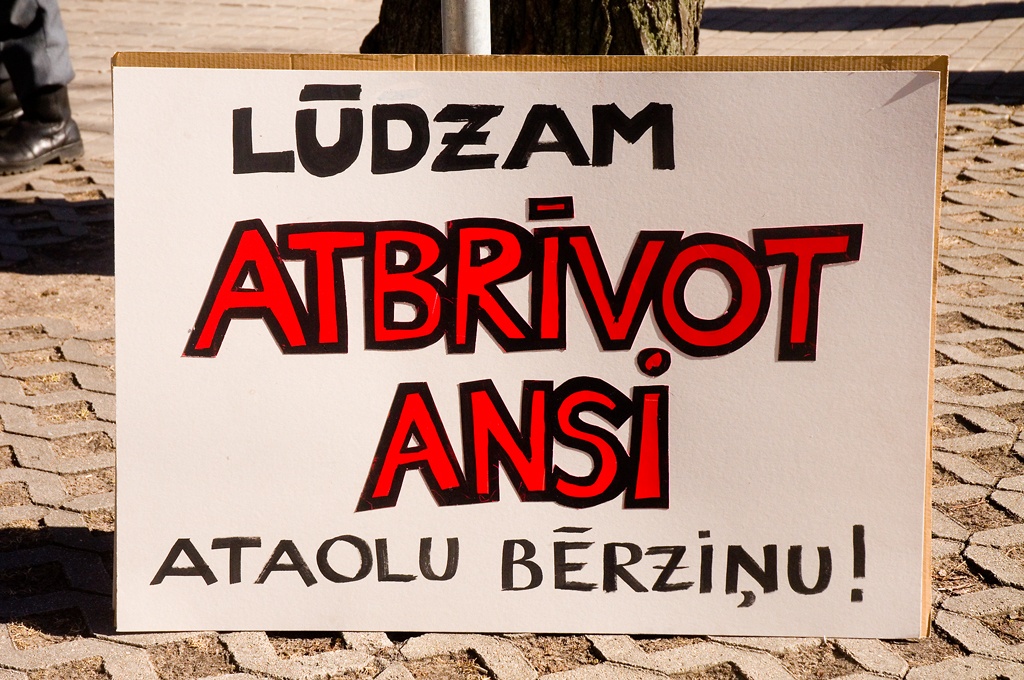 LŪDZAM
ATBRĪVOT
ANSi
ATAOLU BĒRZiŅU!